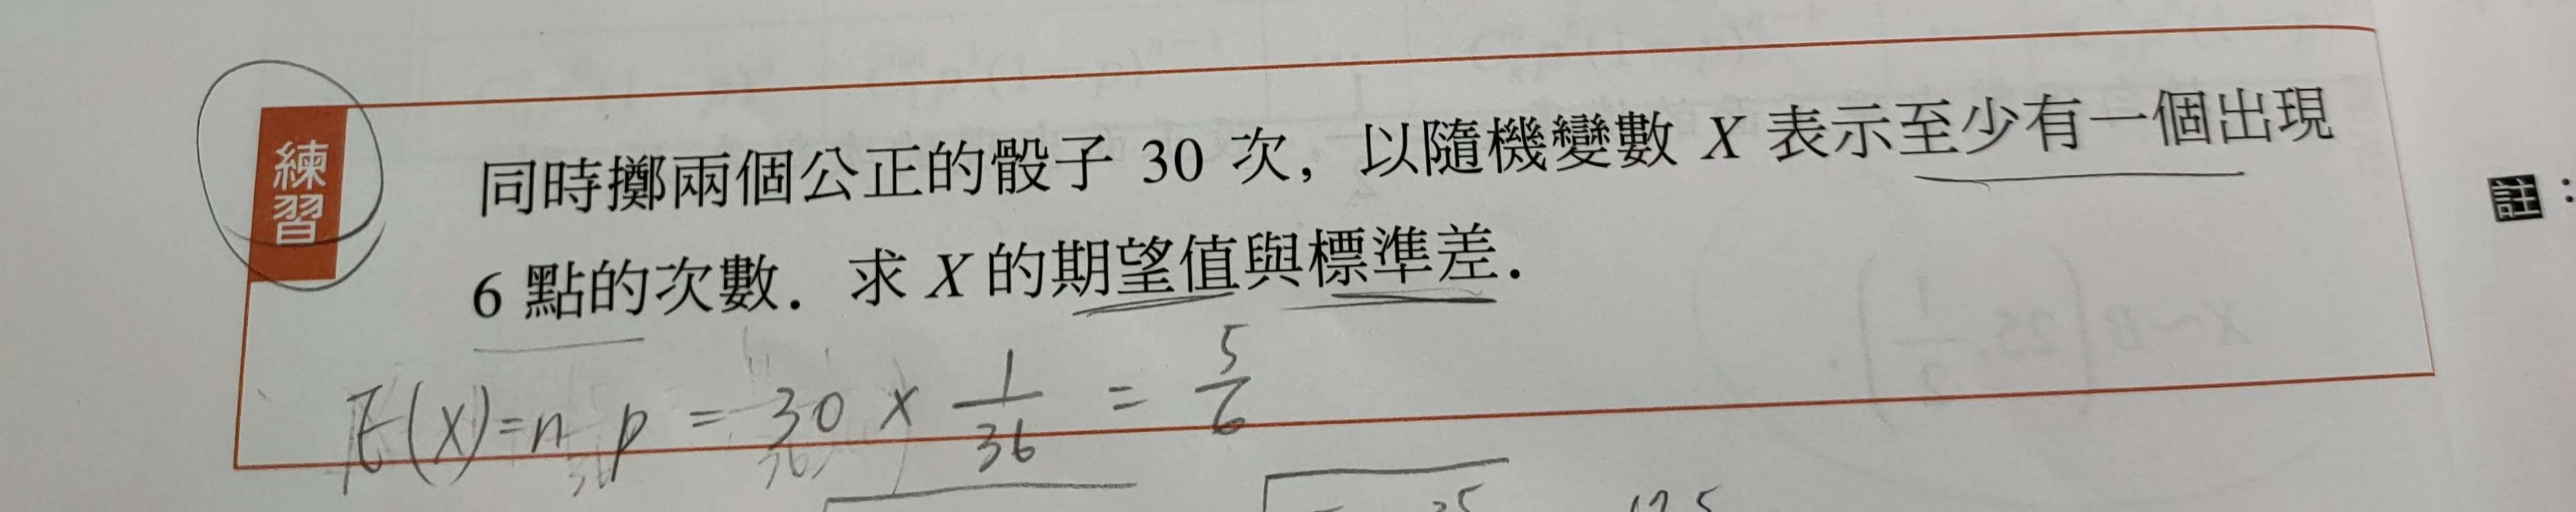 練習
同時擲兩個公正的骰子 30 次，以隨機變數 X 表示至少有一個出現
6 點的次數．求 X 的期望值與標準差．
註：
E(X)=np = 30 × 1/36 = 5/6